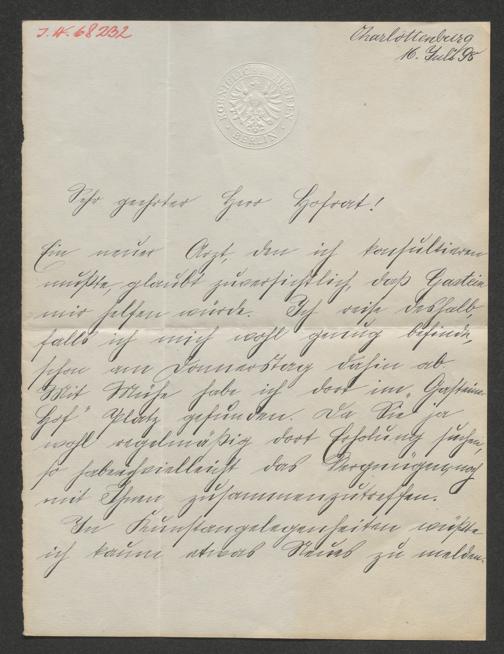 J. N. 68232
Charlottenburg
16. Juli 98
KOENIGLICHE MUSEEN
BERLIN
Sehr geehrter Herr Hofrat!
Ein neuer Arzt, den ich konsultieren
mußte, glaubt zuversichtlich, daß Gastein
mir helfen würde. Ich reise deshalb,
falls ich mich wohl genug befinde,
schon am Donnerstag dahin ab.
Mit Mühe habe ich dort im „Gasteiner
Hof" Platz gefunden. Da Sie ja
wohl regelmäßig dort Erholung suchen,
so habe ich vielleicht das Vergnügen, noch
mit Ihnen zusammenzutreffen.
In Kunstangelegenheiten wüßte
ich kaum etwas Neues zu melden.